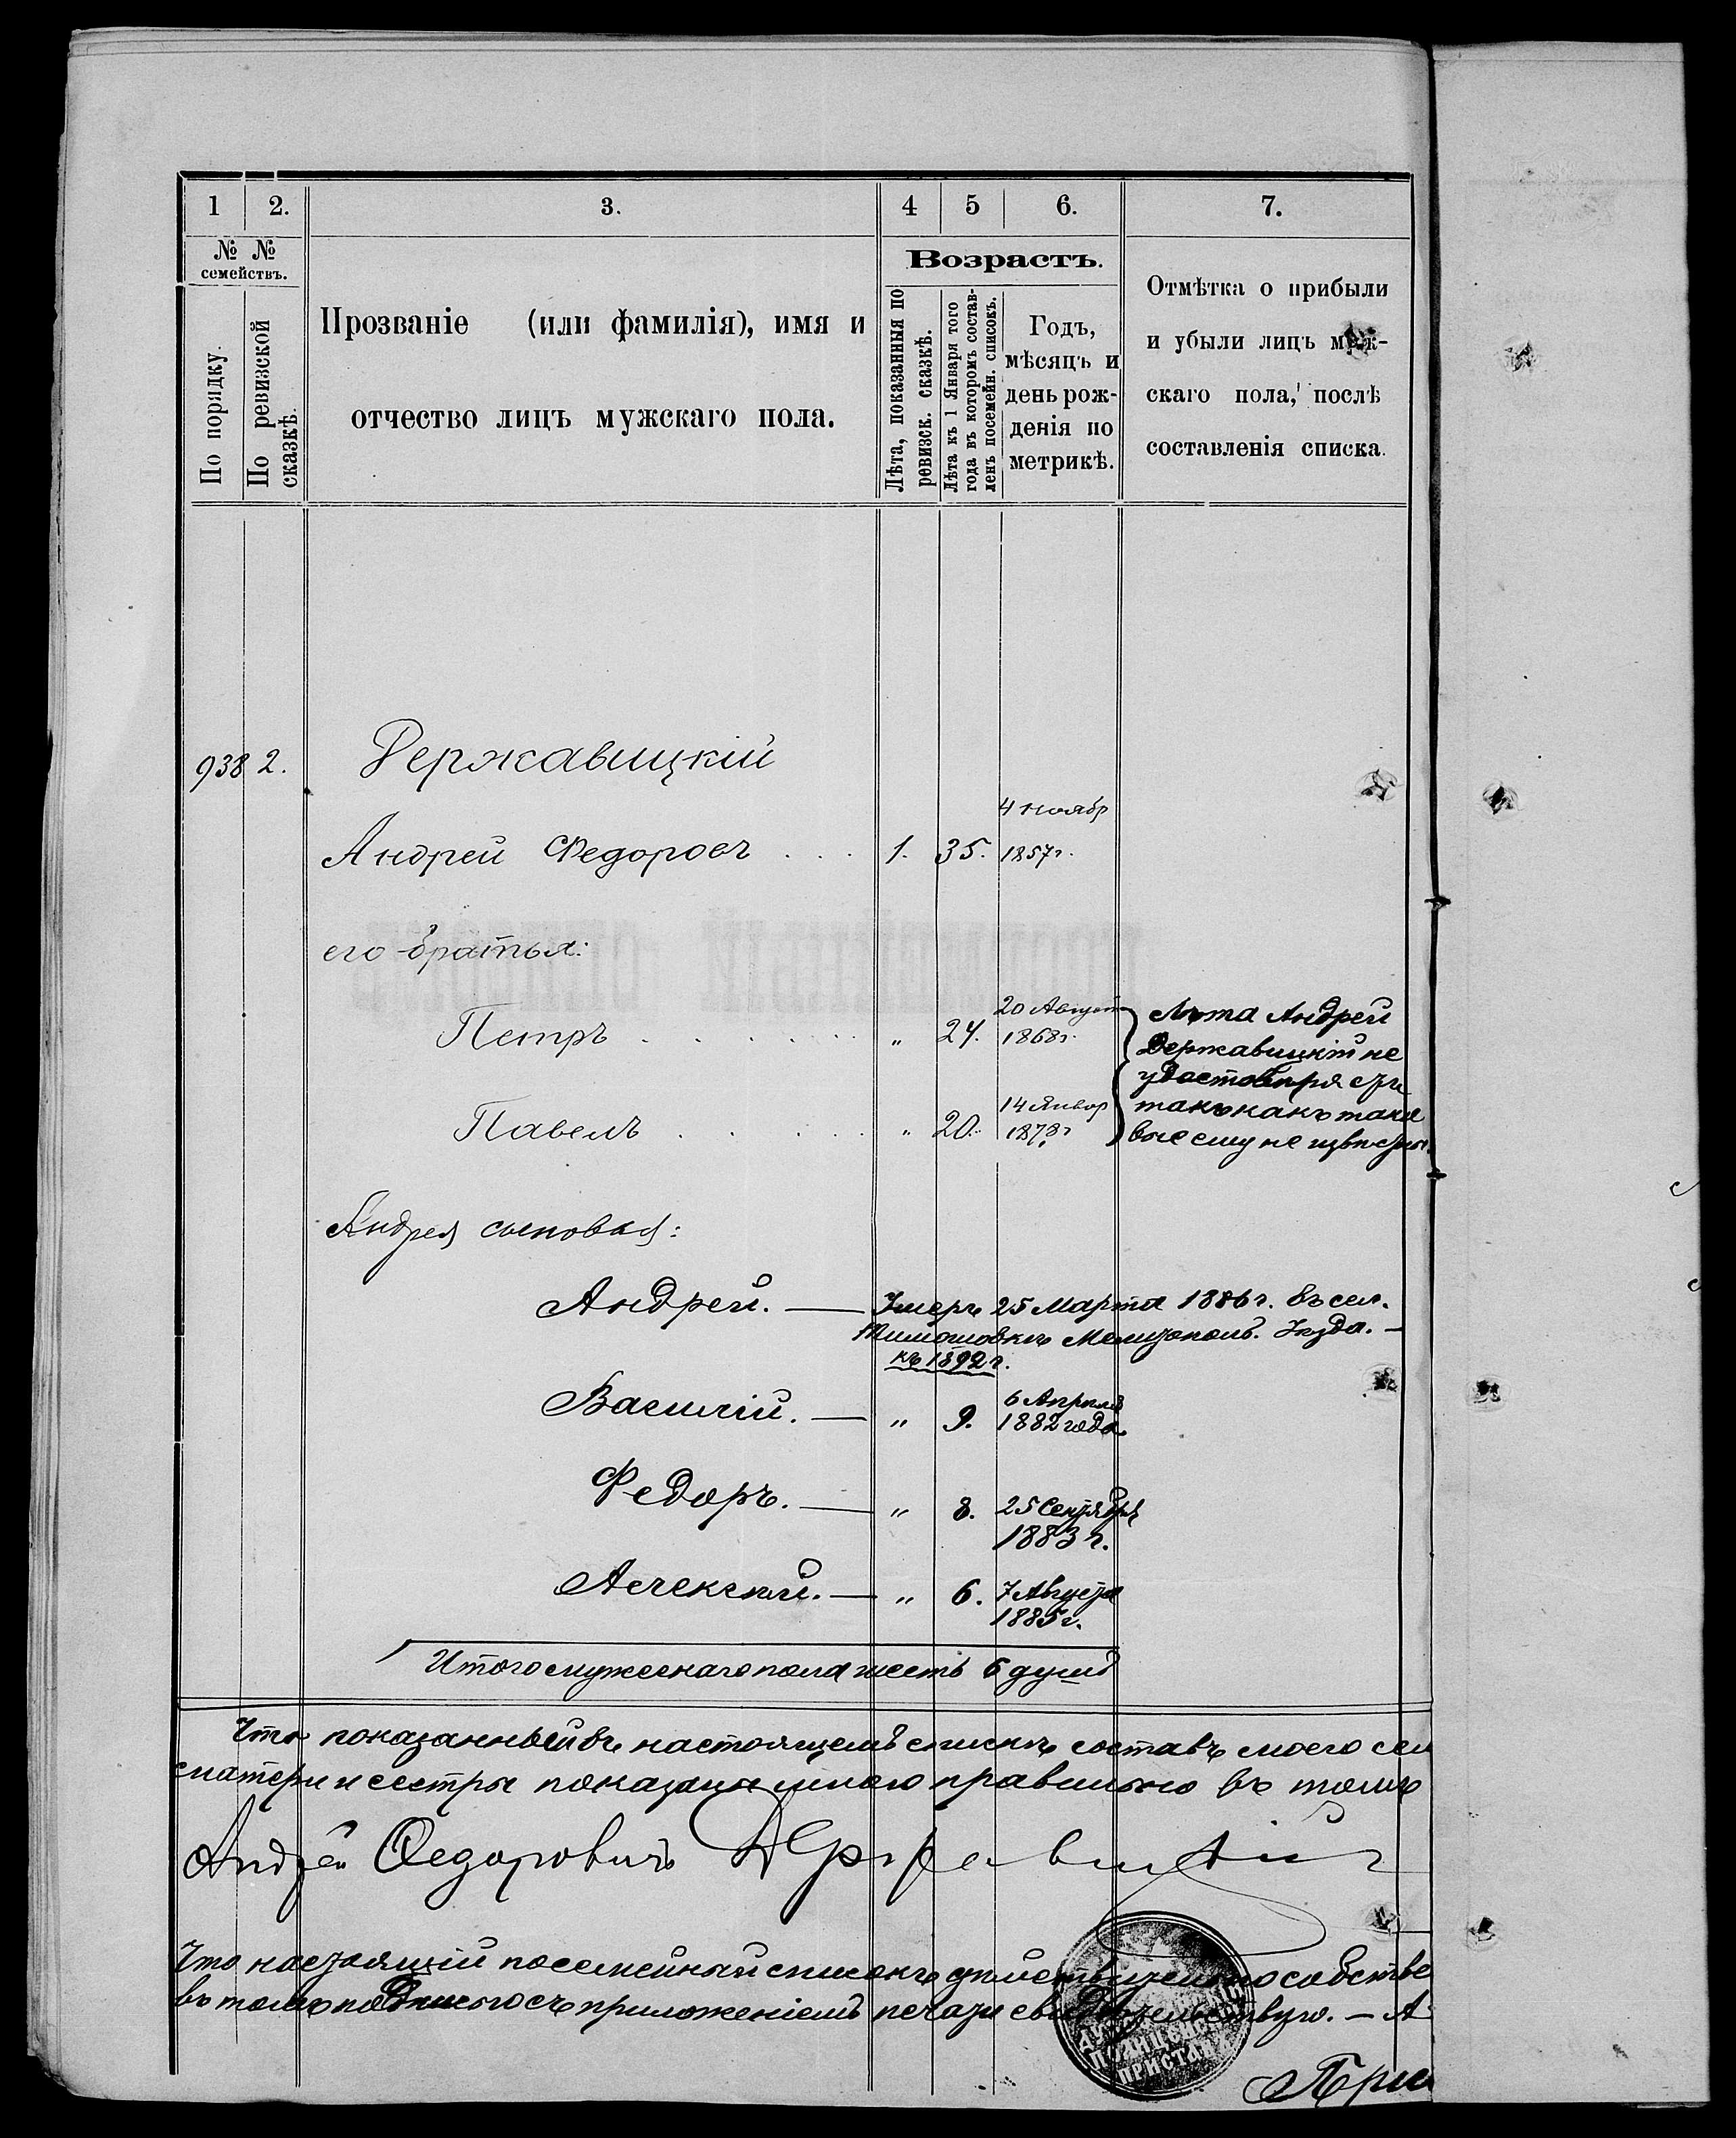 1 2. 3. 4 5 6. 7.
№ №
семействъ.
По порядку.
По ревизской
сказкѣ.
Прозваніе (или фамилія), имя и
отчество лицъ мужскаго пола.
Возрастъ.
Лѣта, показанныя по
ревизск. сказкѣ.
Лѣта къ 1 Января того
года въ которомъ состав-
ленъ посемейн. списокъ.
Годъ,
мѣсяцъ и
день рож-
денія по
метрикѣ.
Отмѣтка о прибыли
и убыли лицъ муж-
скаго пола, послѣ
составленія списка.
938 2. Державицкій
Андрей Федоровъ . . . 1. 35. 4 ноябр
1857г.
его братья:
Петръ . . . . . . . „ 24. 20 Август
1868г.
Павелъ . . . . . „ 20. 14 Январ
187 г
Лѣта Андрей
Державицкій не
удостовѣряетъ
такъ какъ тако
вые ему не извѣстны.
Андрея сыновья:
Андрей. — Умеръ 25 Марта 1886г. въ сел.
Тимошовкѣ Мелитополь. Уѣзда. —
къ 1892г.
Василій. — „ 9. 6 Апрѣля
1882 года.
Федоръ. — „ 8. 25 Сентября
1883 г.
Алексѣй. — „ 6. 7 Августа
1885г.
Итого мужескаго пола шесть 6 душъ
Что показанный въ настоящемъ спискѣ составъ моего сем
матери и сестры показаны мною правильно въ томъ
Андрей Ѳедоровичъ Державицкій
Что настоящій посемейный списокъ дѣйствительно собстве
въ томъ подписью съ приложеніемъ печати свидѣтельствую. — А
ПРИСТАВ
При